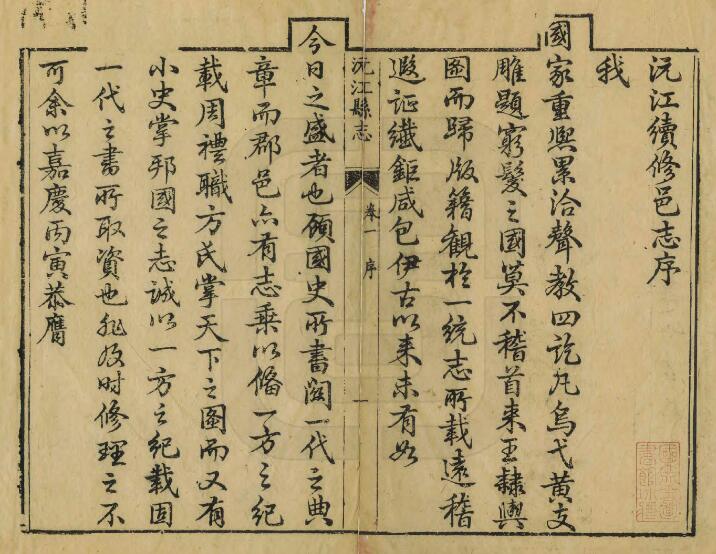 沅江續修邑志序
我
國家重熙累洽聲教四訖凡烏弋黃支
雕題窮髮之國莫不稽首來王隸輿
圖而歸版籍觀於一統志所載遠稽
遐証纖鉅咸包伊古以來未有如
沅江縣志
卷一 序
一
今日之盛者也顧國史所書闕一代之典
章而郡邑亦有志乘以備一方之紀
載周禮職方氏掌天下之圖而又有
小史掌邦國之志誠以一方之紀載固
一代之書所取資也非及時修理之不
可余以嘉慶丙寅恭膺